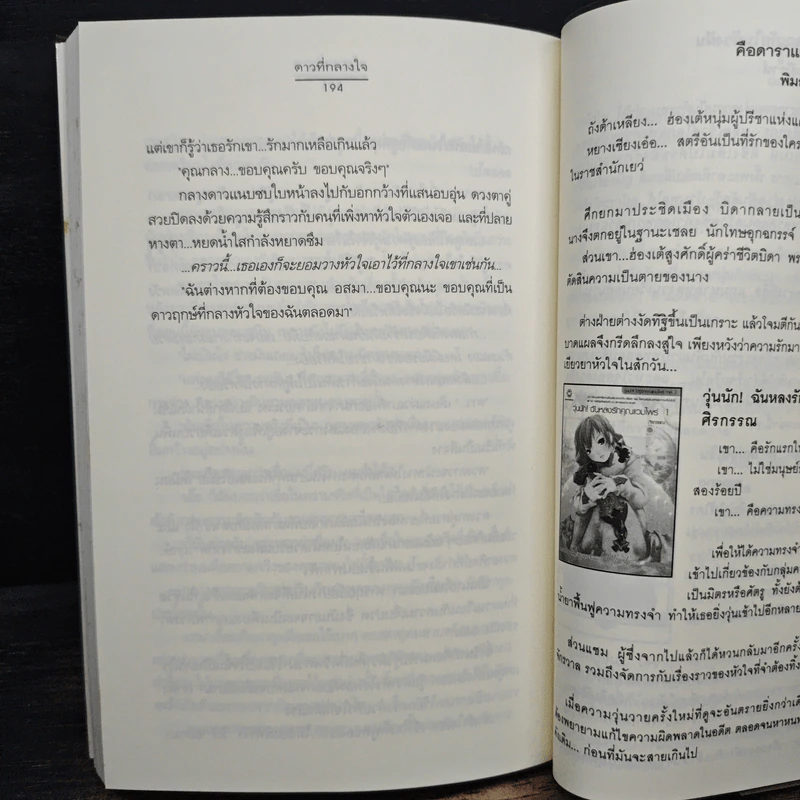 ดาวที่กลางใจ
194
แต่เขาก็รู้ว่าเธอรักเขา...รักมากเหลือเกินแล้ว
"คุณกลาง...ขอบคุณครับ ขอบคุณจริงๆ"
กลางดาวแนบซบใบหน้าลงไปกับอกกว้างที่แสนอบอุ่น ดวงตาคู่
สวยปิดลงด้วยความรู้สึกราวกับคนที่เพิ่งหาหัวใจตัวเองเจอ และที่ปลาย
หางตา...หยดน้ำใสกำลังหยาดซึม
...คราวนี้...เธอเองก็จะยอมวางหัวใจเอาไว้ที่กลางใจเขาเช่นกัน...
"ฉันต่างหากที่ต้องขอบคุณ อสมา...ขอบคุณนะ ขอบคุณที่เป็น
ดาวฤกษ์ที่กลางหัวใจของฉันตลอดมา"
คือดาราแ
พิม
ถังต้าเหลียง... ฮ่องเต้หนุ่มผู้ปรีชาแห่งแค
หยางเซียงเอ๋อ... สตรีอันเป็นที่รักของใคร
ในราชสำนักเยว่
ศึกยกมาประชิดเมือง บิดากลายเป็น
นางจึงตกอยู่ในฐานะเชลย นักโทษอุกฉกรรจ์
ส่วนเขา...ฮ่องเต้สูงศักดิ์ผู้คร่าชีวิตบิดา พร
ตัดสินความเป็นตายของนาง
ต่างฝ่ายต่างงัดทิฐิขึ้นเป็นเกราะ แล้วโจมตีกัน
บาดแผลจึงกรีดลึกลงสู่ใจ เพียงหวังว่าความรักมา
เยียวยาหัวใจในสักวัน...
วุ่นนัก! ฉันหลงรักคุณแวมไพร์ 1
วุ่นนัก! ฉันหลงรั
ศิรกรรณ
เขา... คือรักแรกใ
เขา... ไม่ใช่มนุษย์
สองร้อยปี
เขา... คือความทรง
เพื่อให้ได้ความทรงจำ
เข้าไปเกี่ยวข้องกับกลุ่มค
เป็นมิตรหรือศัตรู ทั้งยังต้
น้ำยาฟื้นฟูความทรงจำ ทำให้เธอยิ่งวุ่นเข้าไปอีกหลาย
ส่วนแซม ผู้ซึ่งจากไปแล้วก็ได้หวนกลับมาอีกครั้ง
จักรวาล รวมถึงจัดการกับเรื่องราวของหัวใจที่จำต้องทิ้ง
เมื่อความวุ่นวายครั้งใหม่ที่ดูจะอันตรายยิ่งกว่าเดิ
ต้องพยายามแก้ไขความผิดพลาดในอดีต ตลอดจนหาหนท
ดังเดิม... ก่อนที่มันจะสายเกินไป